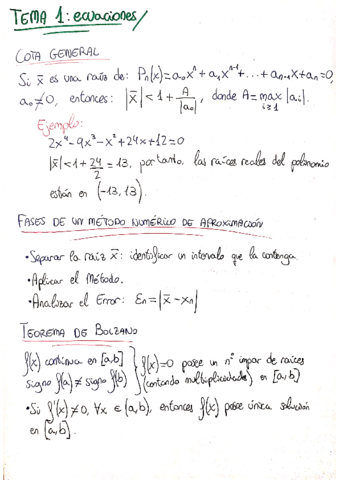 TEMA 1: ecuaciones/
COTA GENERAL
Si x̄ es una raíz de: Pn(x)=a₀xⁿ+a₁xⁿ⁻¹+...+aₙ₋₁x+aₙ=0,
a₀≠0, entonces: |x̄|<1+A/|a₀|, donde A=max i≥1 |aᵢ|.
Ejemplo:
2x⁴-9x³-x²+24x+12=0
|x̄|<1+24/2=13, por tanto, las raíces reales del polinomio
están en (-13,13).
FASES DE UN MÉTODO NUMÉRICO DE APROXIMACIÓN
•Separar la raíz x̄: identificar un intervalo que la contenga
•Aplicar el Método.
•Analizar el Error: Eₙ=|x̄-xₙ|
TEOREMA DE BOLZANO
f(x) continua en [a,b] } f(x)=0 posee un nº impar de raíces
signo f(a)≠signo f(b) } (contando multiplicidades) en [a,b]
•Si f'(x)≠0, ∀x ∈ (a,b), entonces f(x) posee única solución
en [a,b].